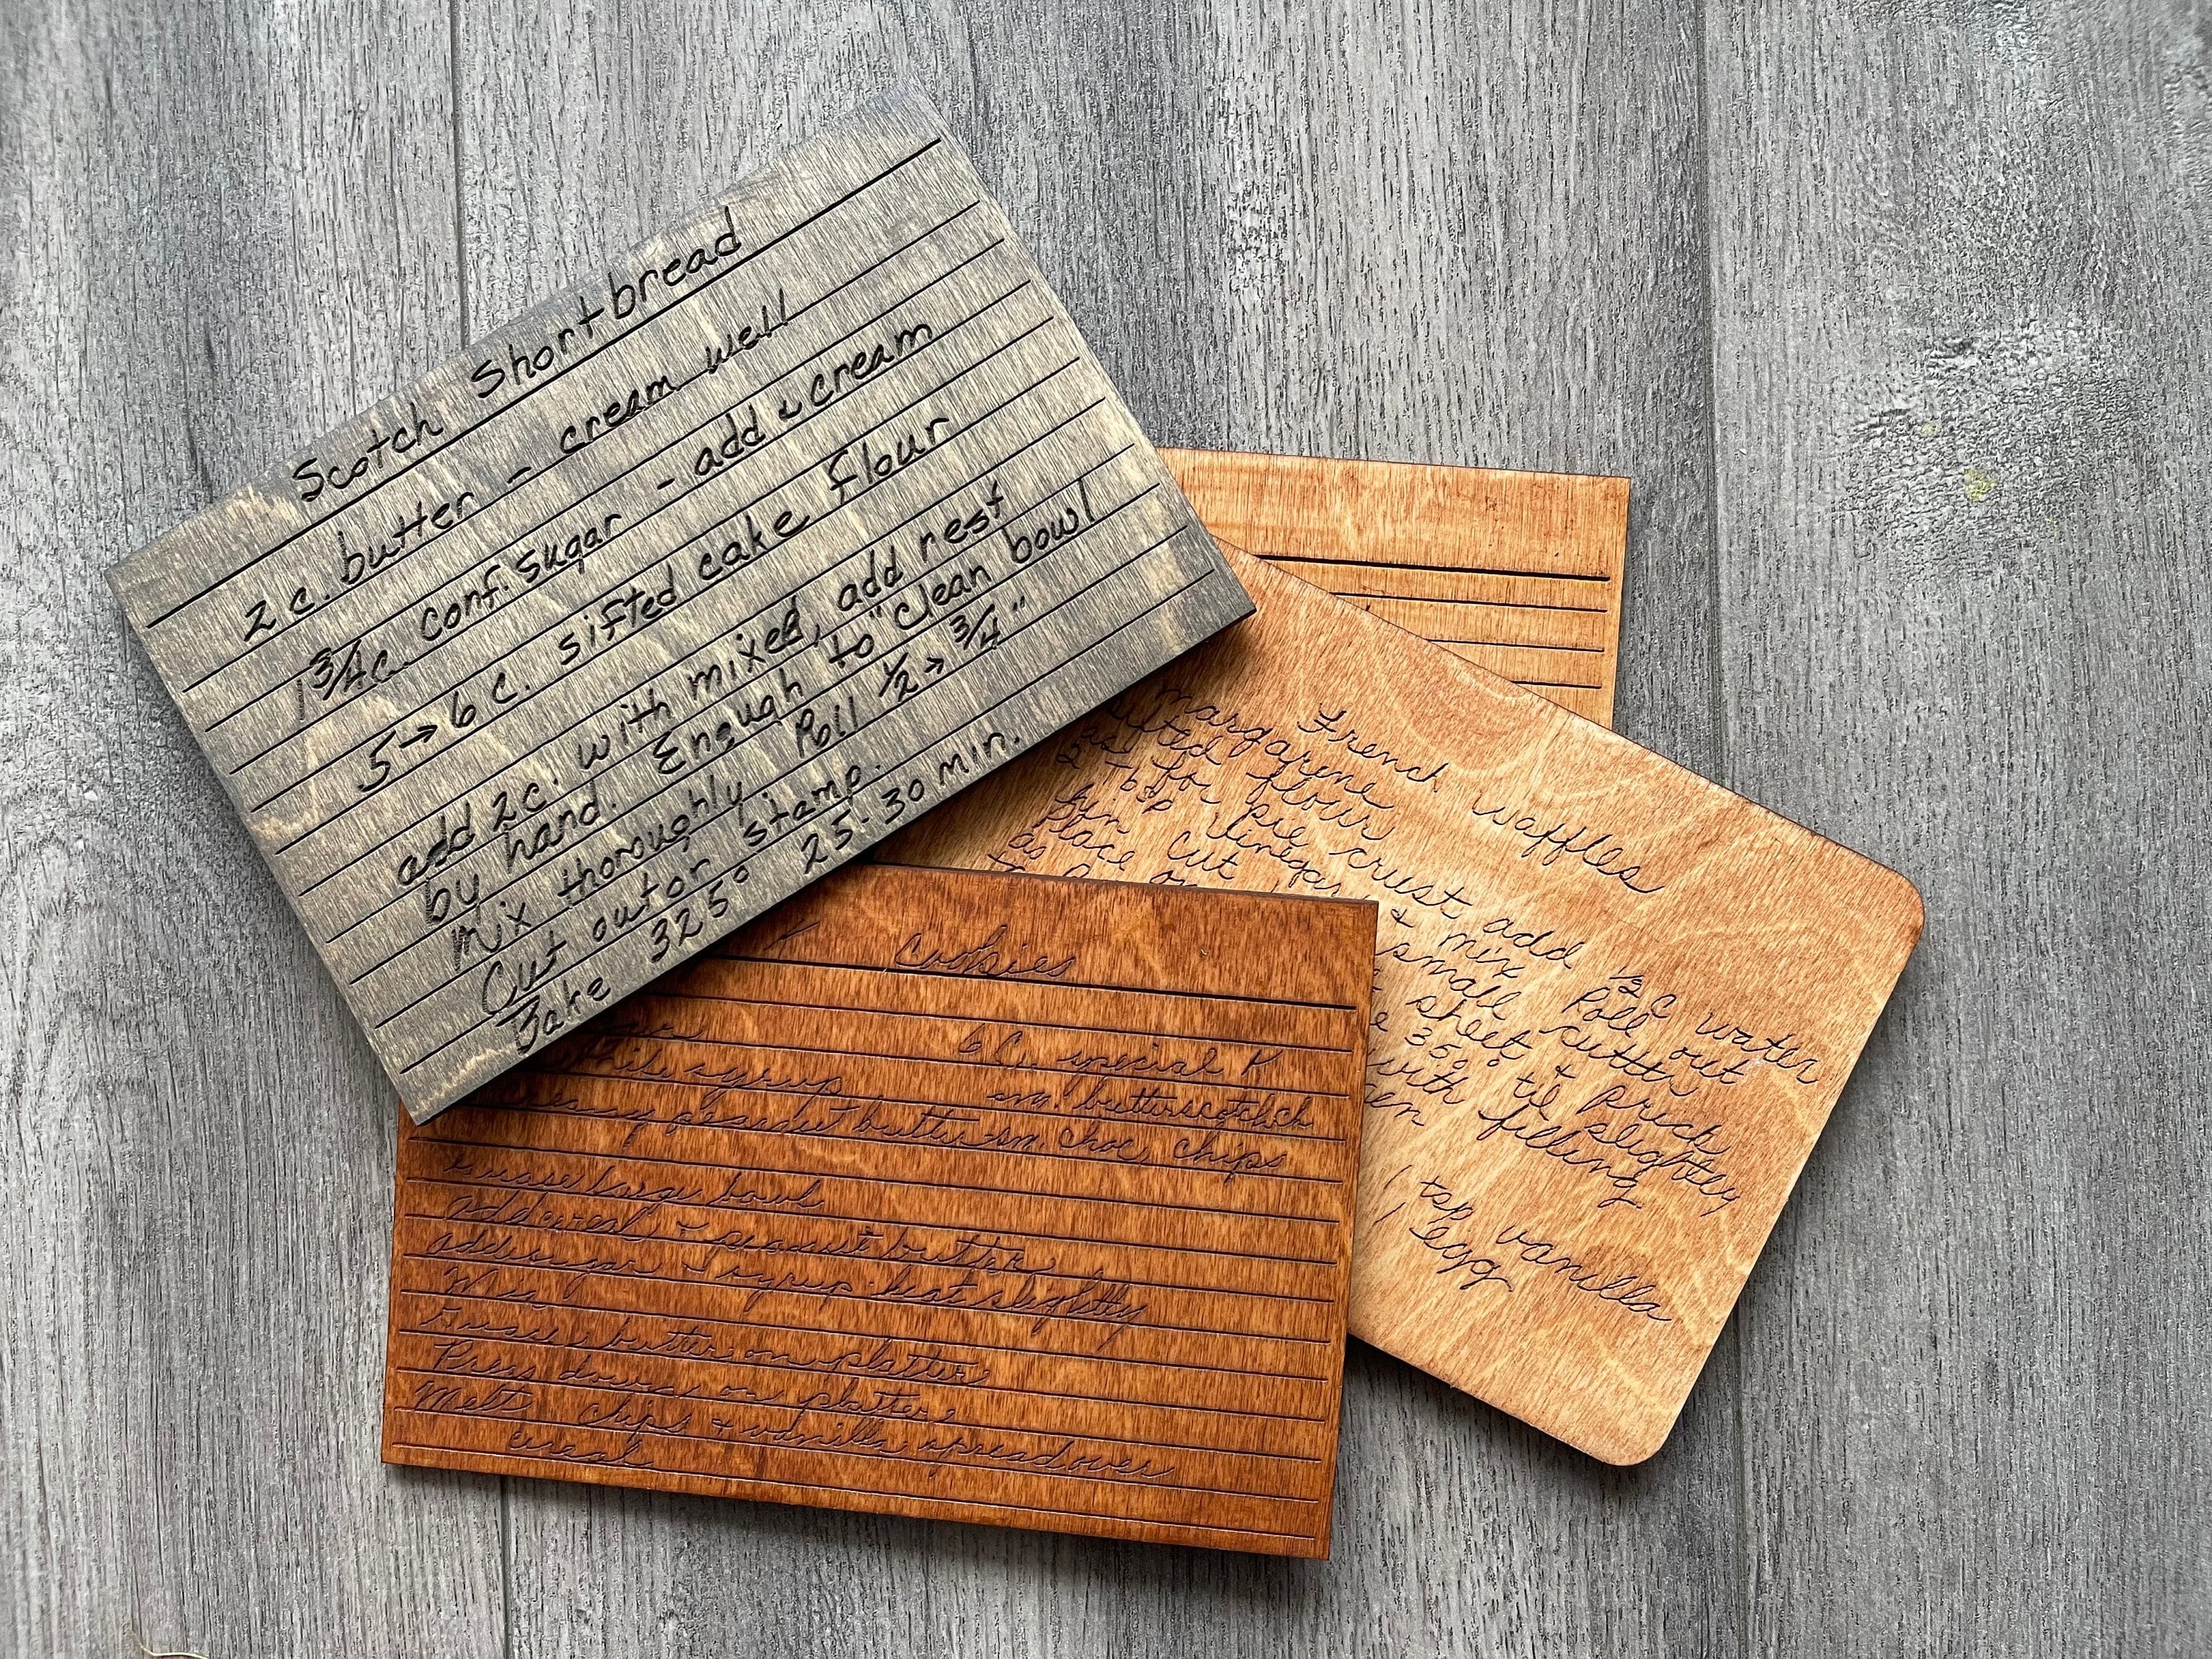 Scotch Shortbread
2 c. butter - cream well
1 3/4 c. conf. sugar - add & cream
5→6 c. sifted cake flour
add 2 c. with mixed, add rest
by hand. Enough to "clean bowl"
mix thoroughly Roll 1/2→3/4"
Cut out or stamp.
Bake 325° 25-30 min.
French Waffles
margarene
sifted flour
as for pie crust add 1/2 C water
2 tsp vinegar & mix Roll out
thin cut small cutter
place on sheet & prick
as 350 til slightly
with filling
1 tsp vanilla
1 egg
K Cookies
6 C. special K
white syrup sm. butterscotch ch
creamy peanut butter sm. choc chips
Grease large bowl
Add cereal & peanut butter
add sugar & syrup - heat slightly
Mix
butter on platter
Press down on platter
Melt chips & vanilla, spread over
cereal